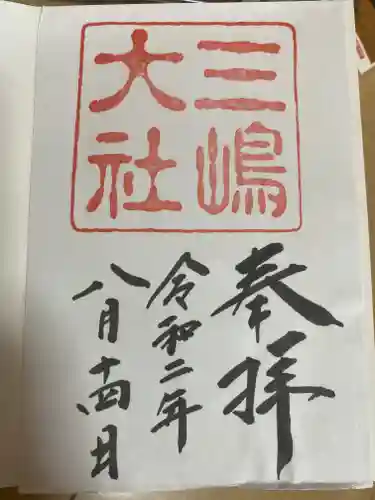 三嶋
大社
奉拝
令和二年
八月十四日